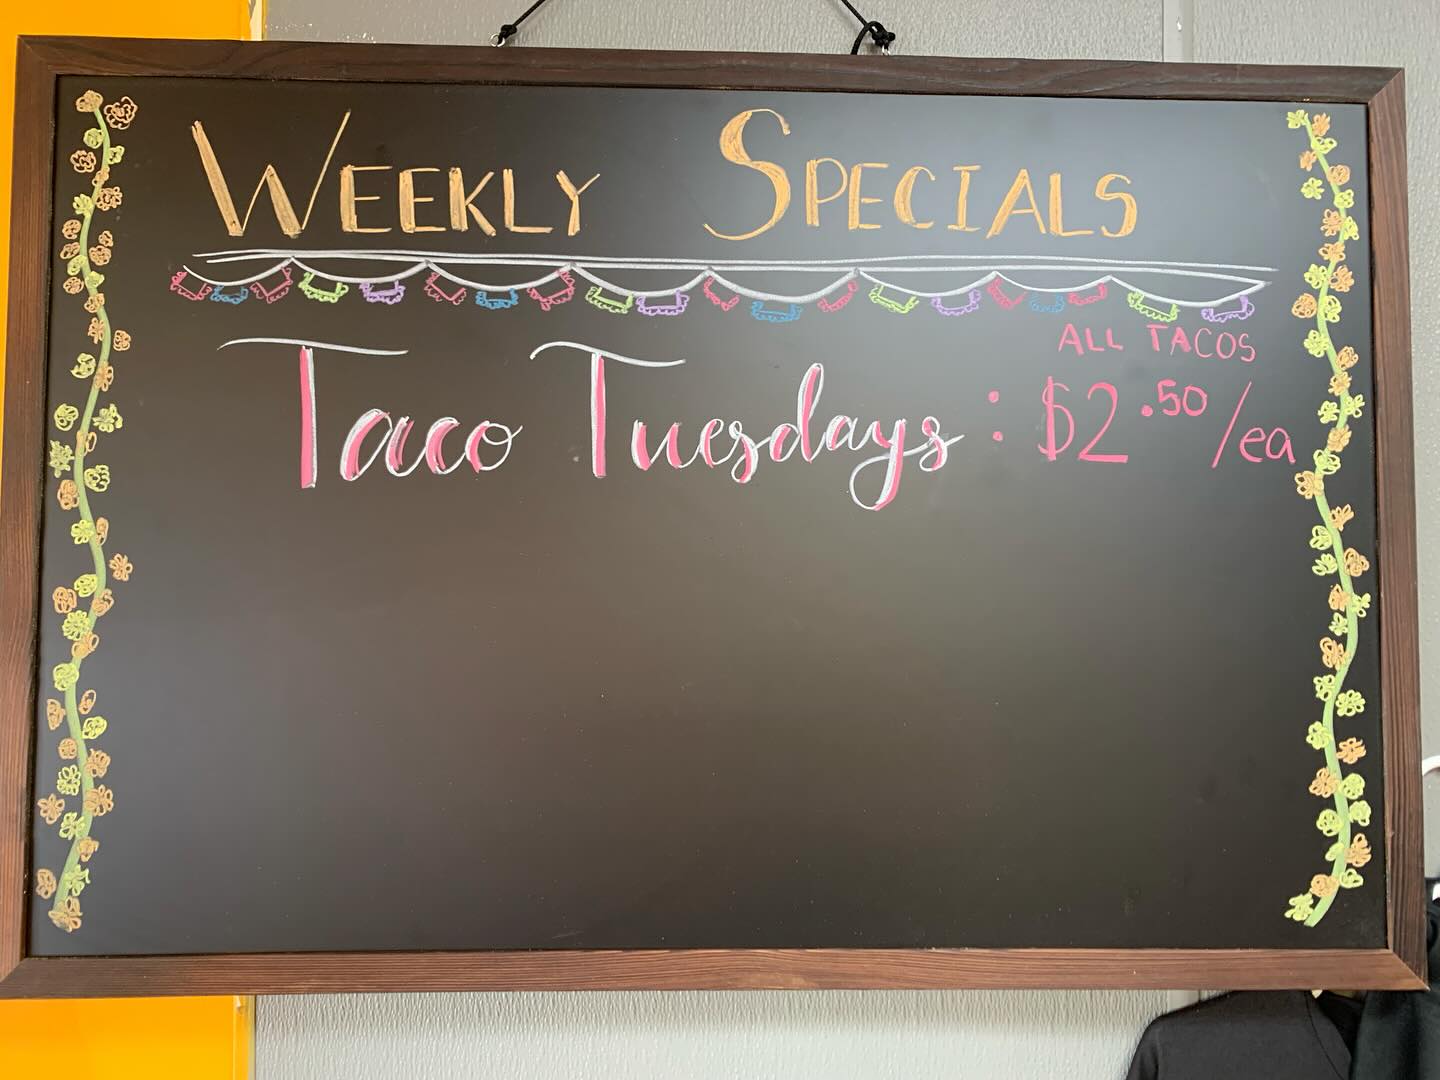 WEEKLY SPECIALS
ALL TACOS
Taco Tuesdays : $2.50/ea